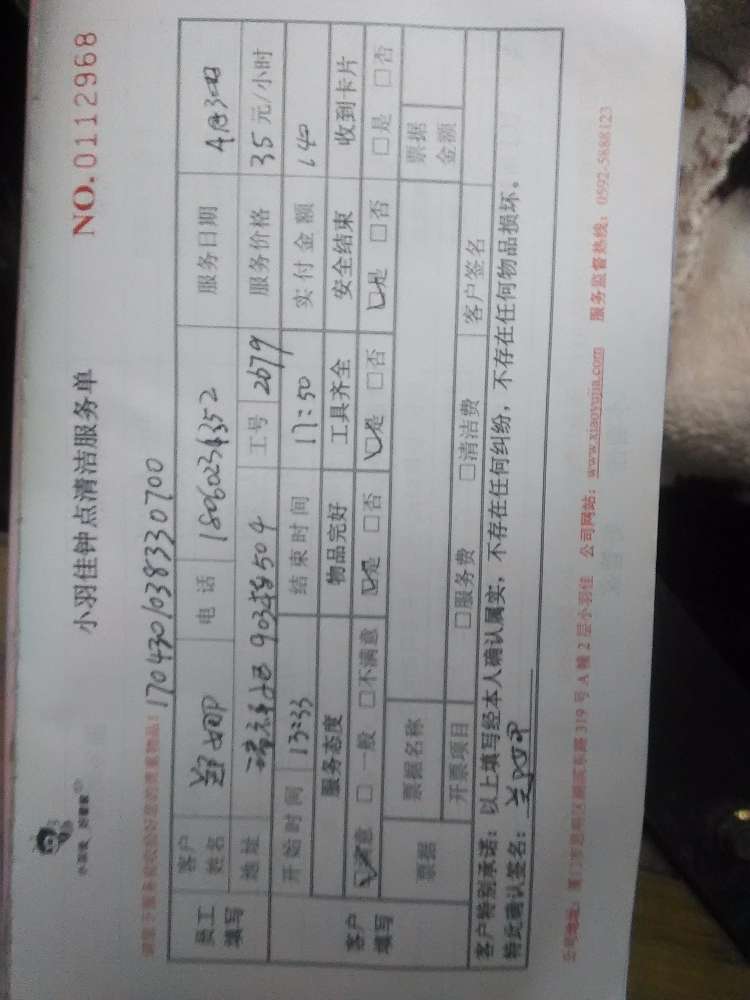 小羽佳 好管家
小羽佳钟点清洁服务单
NO.0112968
请您于服务前收拾好您的贵重物品!
170430103833070 0
员工填写
客户姓名
电话 18060234352
服务日期 4月30日
地址 903栋504
工号 2679
服务价格 35元/小时
开始时间 13:33
结束时间 17:50
实付金额 140
客户填写
服务态度 物品完好 工具齐全 安全结束 收到卡片
☑满意 □一般 □不满意 ☑是 □否 ☑是 □否 ☑是 □否 □是 □否
票据 票据名称 票据金额
开票项目 □服务费 □清洁费 客户签名
客户特别承诺:以上填写经本人确认属实,不存在任何纠纷,不存在任何物品损坏。
特此确认签名:
公司地址:厦门市思明区湖滨东路319号A幢2层小羽佳 公司网站:www.xiaoyujia.com 服务监督热线:0592-5688123